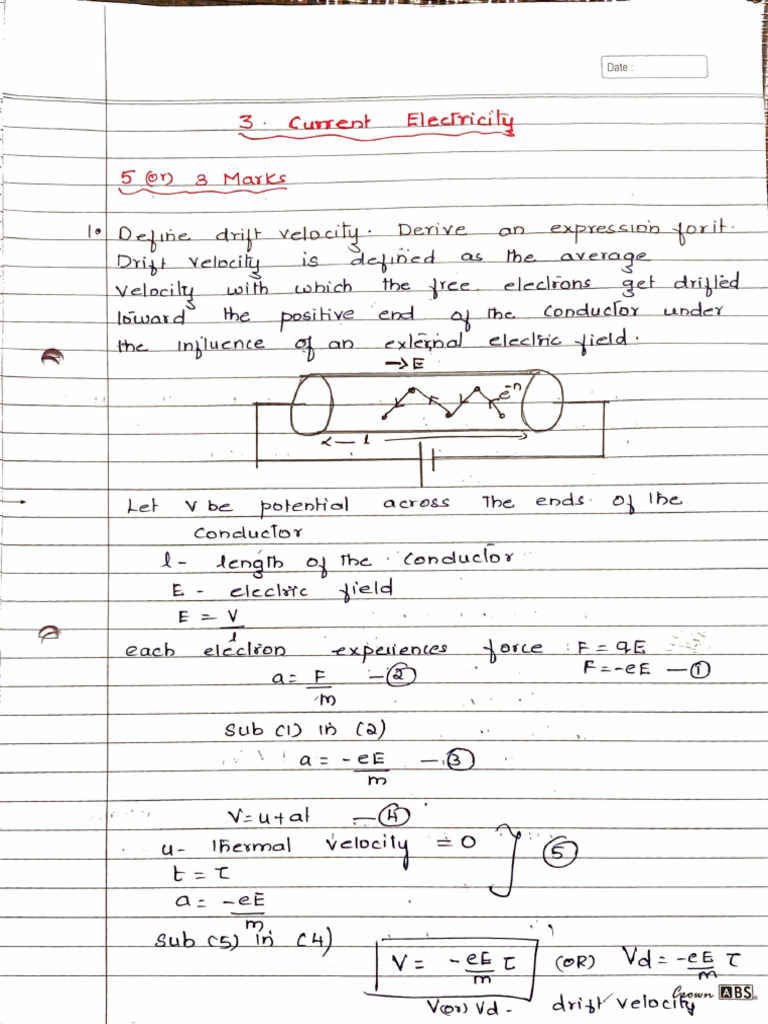 Date :
3. Current Electricity
5 (or) 3 Marks
1. Define drift velocity. Derive an expression for it.
Drift velocity is defined as the average
velocity with which the free elections get drifted
toward the positive end of the conductor under
the influence of an external electric field.
→E
e⁻ⁿ
l
Let V be potential across the ends of the
conductor
l - length of the conductor
E - electric field
E = V/l
each electron experiences force F = qE
a = F/m — ② F = -eE — ①
Sub (1) in (2)
a = -eE/m — ③
V = u + at — ④
u - thermal velocity = 0
t = τ ⑤
a = -eE/m
Sub (5) in (4)
V = -eE/m τ (OR) Vd = -eE/m τ
V(or) Vd - drift velocity
Crown ABS